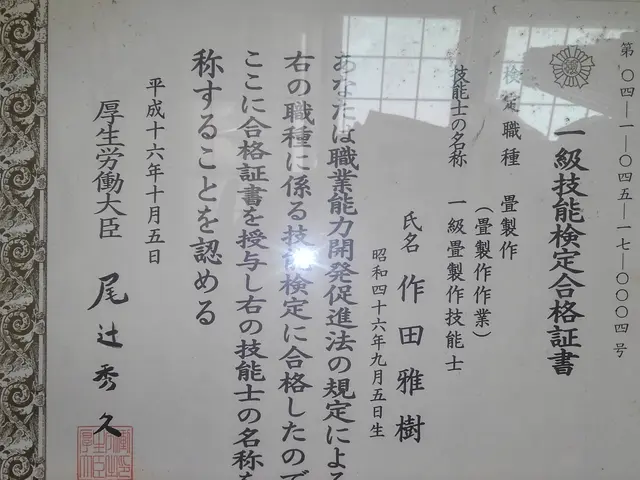 第〇四—一—〇四五—一七—〇〇〇四号
一級技能検定合格証書
検定職種 畳製作
(畳製作作業)
技能士の名称 一級畳製作技能士
氏名 作田雅樹
昭和四十六年九月五日生
あなたは職業能力開発促進法の規定による
右の職種に係る技能検定に合格したので
ここに合格証書を授与し右の技能士の名称を
称することを認める
平成十六年十月五日
厚生労働大臣 尾辻秀久